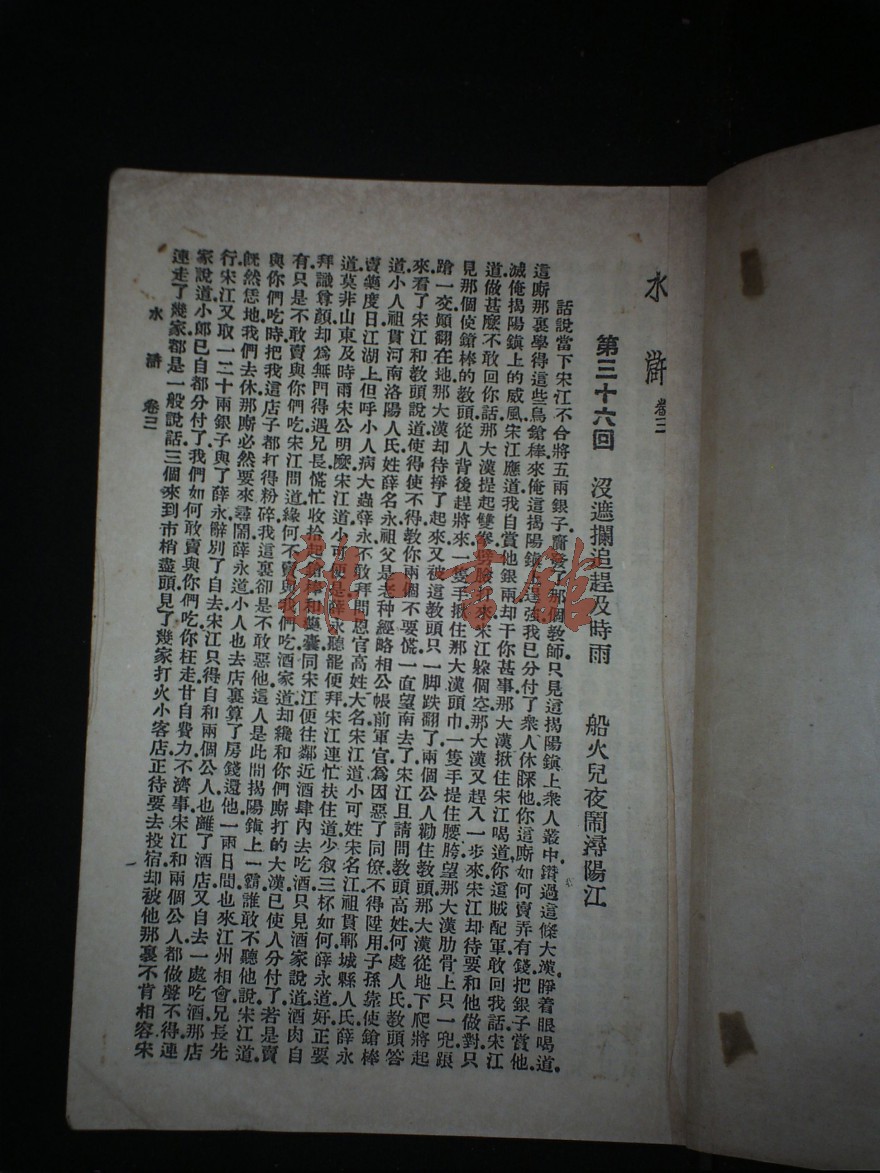 水滸 卷三
第三十六回 沒遮攔追趕及時雨 船火兒夜鬧潯陽江
話說當下宋江不合將五兩銀子齎發了那個教師只見這揭陽鎮上衆人叢中鑽過這條大漢睜着眼喝道
這廝那裏學得這些鳥鎗棒來俺這揭陽鎮上逞強我已分付了衆人休睬他你這廝如何賣弄有錢把銀子賞他
滅俺揭陽鎮上的威風宋江應道我自賞他銀兩却干你甚事那大漢揪住宋江喝道你這賊配軍敢回我話宋江
道做甚麽不敢回你話那大漢提起雙拳劈臉打來宋江躲個空那大漢又趕入一步來宋江却待要和他做對只
見那個使鎗棒的教頭從人背後趕將來一隻手揪住那大漢頭巾一隻手提住腰胯望那大漢肋骨上只一兜踉
蹌一交顚翻在地那大漢却待掙了起來又被這教頭只一脚踢翻了兩個公人勸住教頭那大漢從地下爬將起
來看了宋江和教頭說道使得使不得教你兩個不要慌一直望南去了宋江且請問教頭高姓何處人氏教頭答
道小人祖貫河南洛陽人氏姓薛名永祖父是老种經略相公帳前軍官爲因惡了同僚不得陞用子孫靠使鎗棒
賣藥度日江湖上但呼小人病大蟲薛永不敢拜問恩官高姓大名宋江道小可姓宋名江祖貫鄆城縣人氏薛永
道莫非山東及時雨宋公明麽宋江道小可便是薛永聽罷便拜宋江連忙扶住道少叙三杯如何薛永道好正要
拜識尊顔却爲無門得遇兄長慌忙收拾起鎗棒和藥囊同宋江便往鄰近酒肆內去吃酒只見酒家說道酒肉自
有只是不敢賣與你們吃宋江問道緣何不賣與我們吃酒家道却纔和你們廝打的大漢已使人分付了若是賣
與你們吃時把我這店子都打得粉碎我這裏卻是不敢惡他這人是此間揭陽鎮上一霸誰敢不聽他說宋江道
既然恁地我們去休那廝必然要來尋鬧薛永道小人也去店裏算了房錢還他一兩日間也來江州相會兄長先
行宋江又取一二十兩銀子與了薛永辭別了自去宋江只得自和兩個公人也離了酒店又自去一處吃酒那店
家說道小郎已自都分付了我們如何敢賣與你們吃你枉走甘自費力不濟事宋江和兩個公人都做聲不得連
連走了幾家都是一般說話三個來到市梢盡頭見了幾家打火小客店正待要去投宿却被他那裏不肯相容宋
水滸 卷三
雜·書館